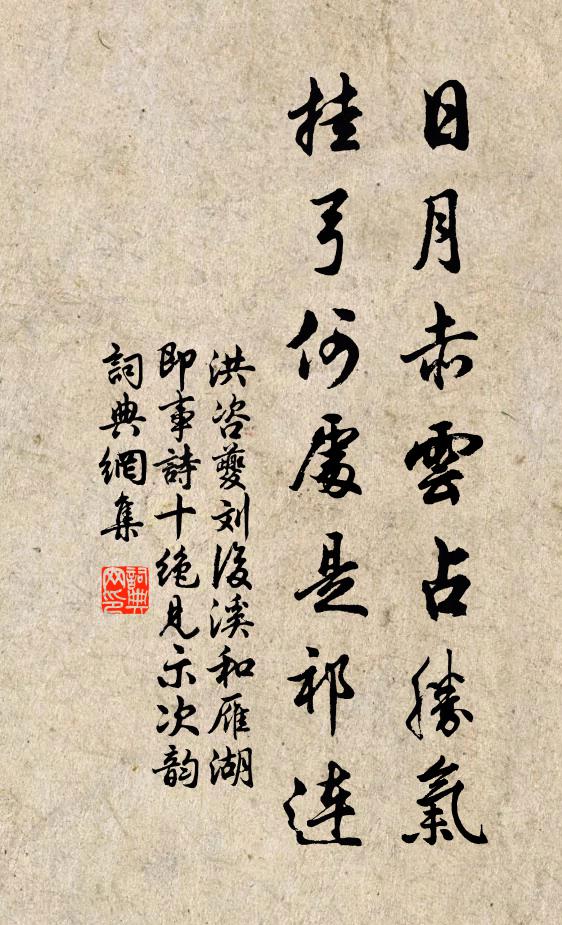 日月赤雲占勝氣
挂弓何處是祁連
洪咨夔刘後溪和雁湖
即事詩十絶見示次韵
詞典網集
詞典
网印